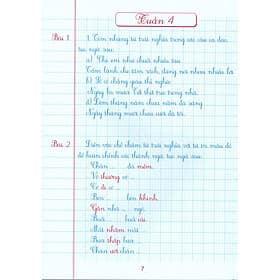 Tuần 4
Bài 1
1. Tìm những từ trái nghĩa trong các câu ca dao,
tục ngữ sau:
a) Cha em như chuối nhiều tàu
Tấm lành che tấm rách, đừng nói nhau nhiều lời
b) Ai có chẳng quản thì nghèo
Ngày ba mươi Tết thịt treo trong nhà.
c) Đêm tháng năm chưa nằm đã sáng
Ngày tháng mười chưa cười đã tối.
Bài 2
Điền vào chỗ chấm từ trái nghĩa với từ in màu đỏ
để hoàn chỉnh các thành ngữ, tục ngữ sau:
Chân ... đá mềm.
Vô thưởng vô ...
Có đi có ...
Bên ... bên khinh.
Gần nhà ... ngõ.
Buổi ... buổi cái.
Mắt nhắm mắt ...
Bước thấp bước ...
Chân ướt chân ...
7